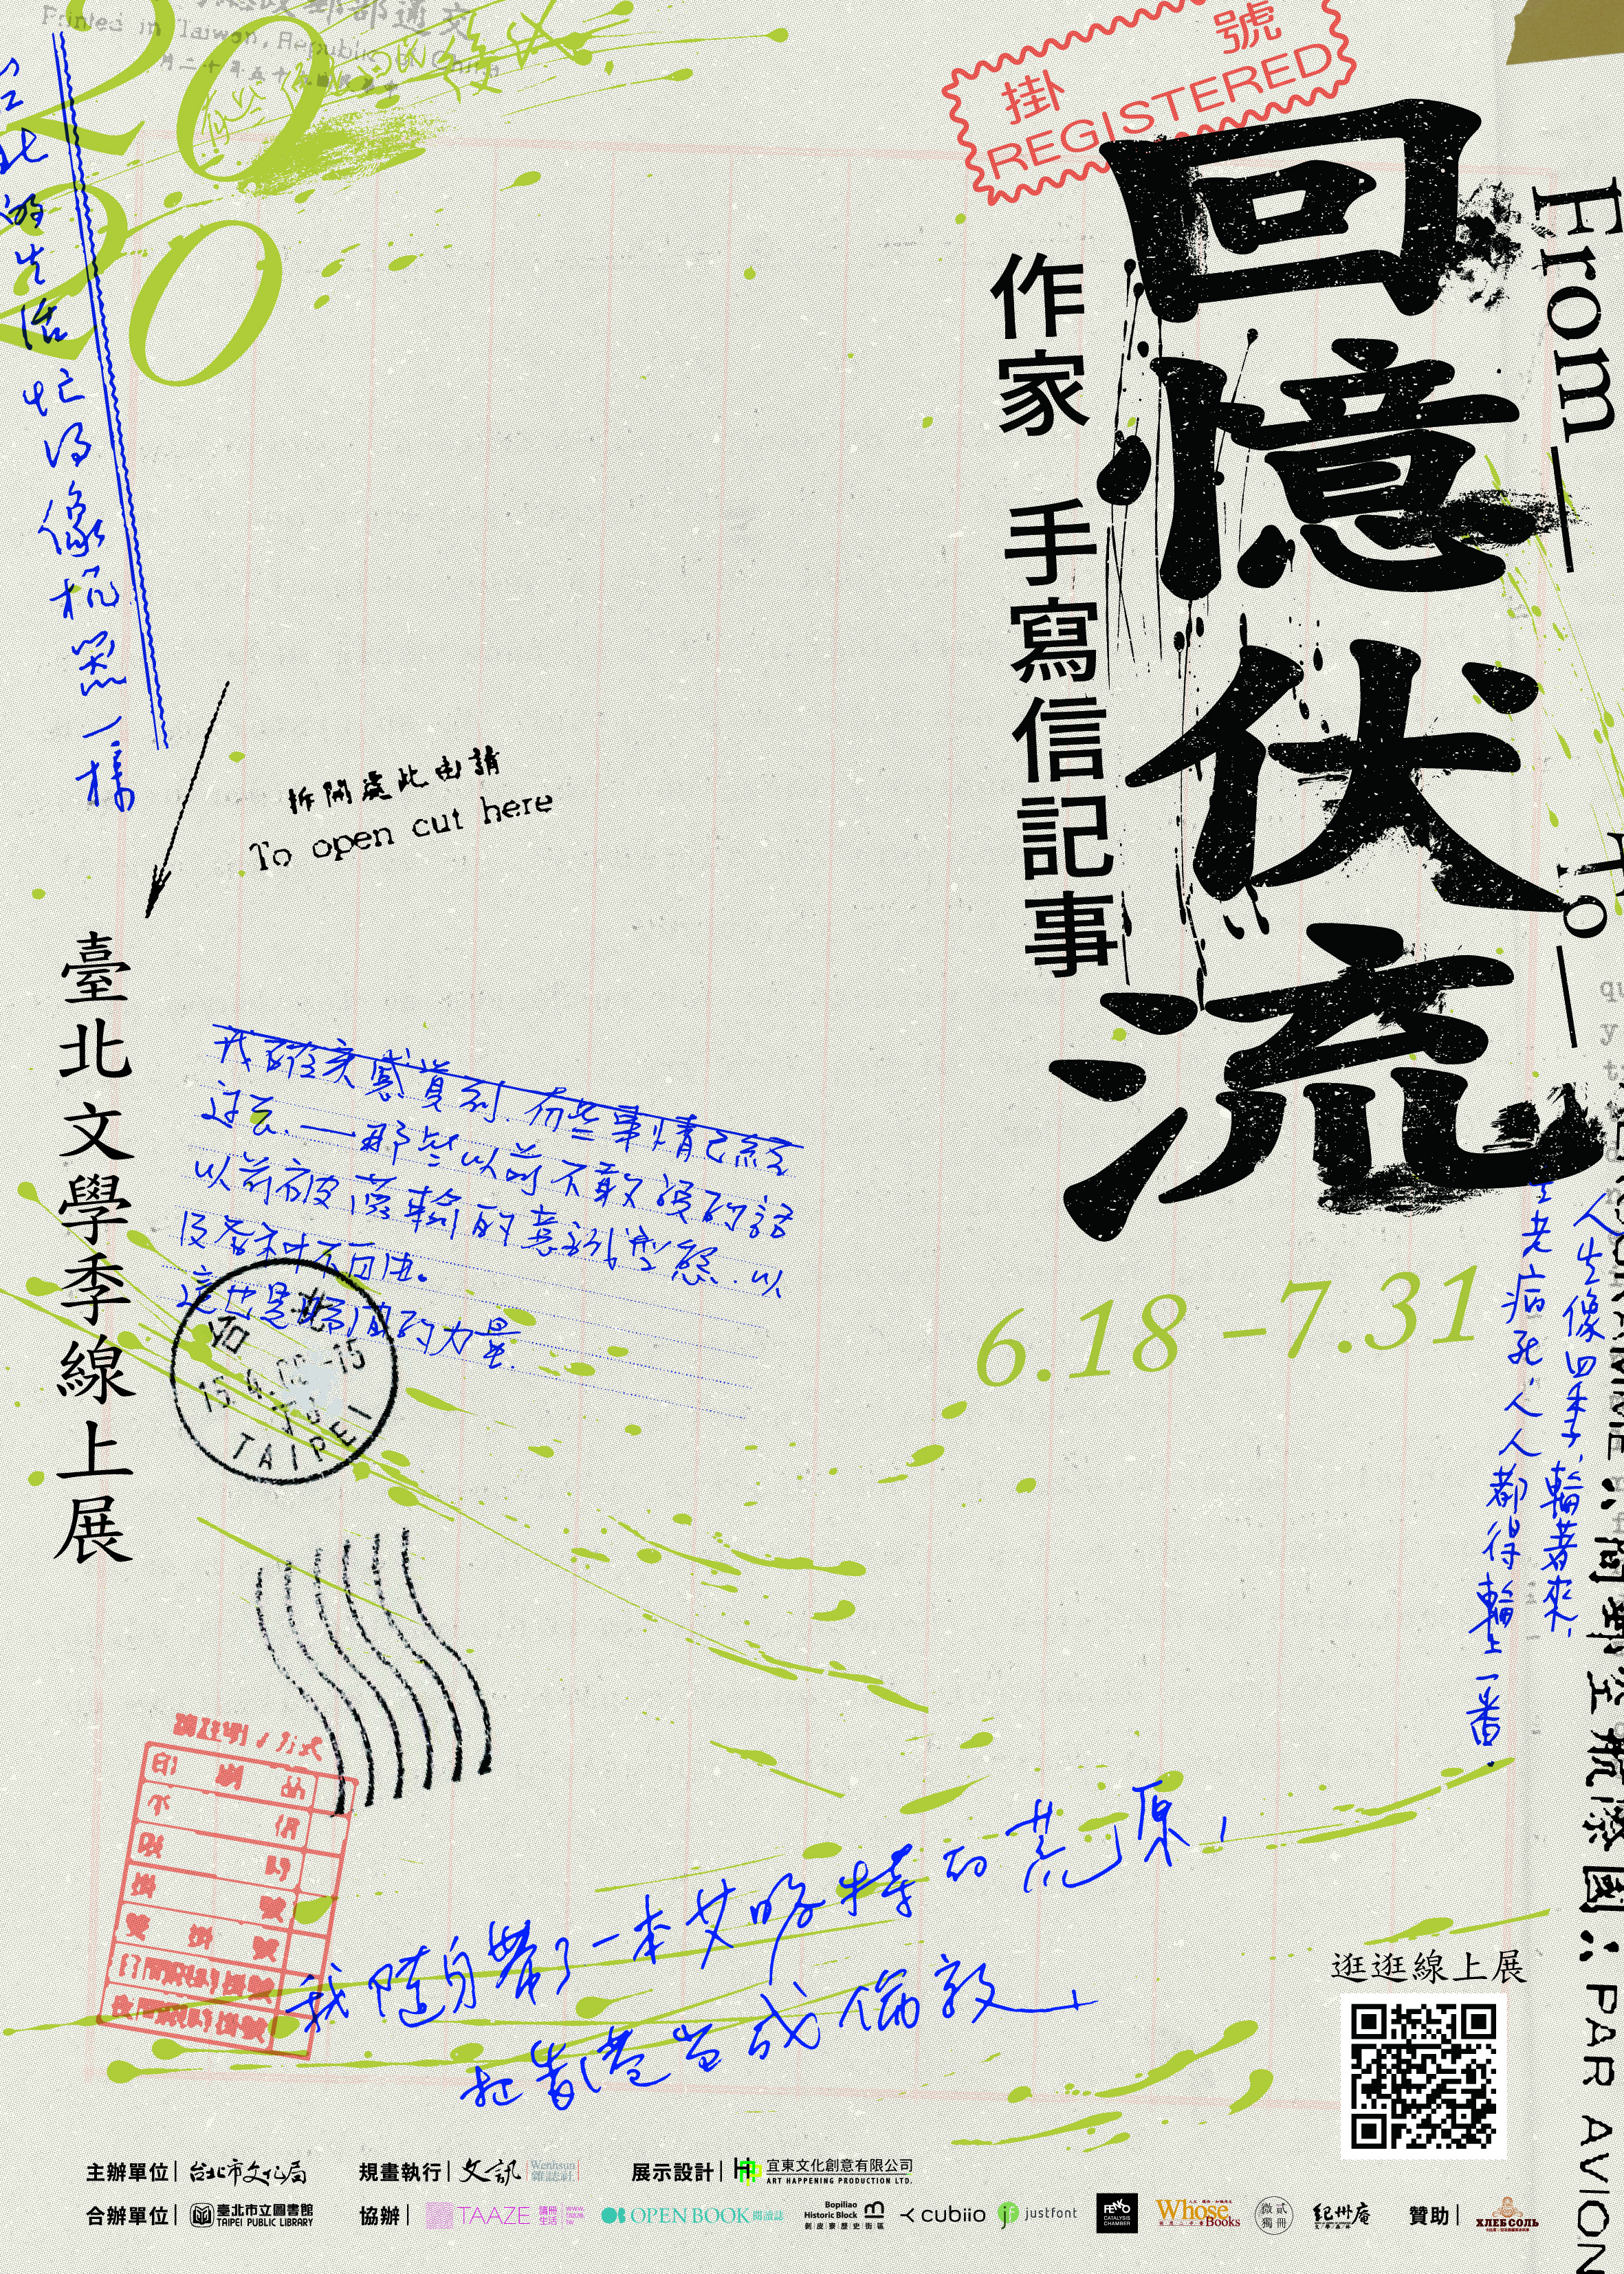 Printed in Taiwan, Republic of China
2020
掛號
REGISTERED
From
To
回憶伏流
作家 手寫信記事
的生活忙得像机器一樣
拆開處此由請
To open cut here
臺北文學季線上展
我確實感覺到.有些事情已經
过去.——那些以前不敢談的話
以前被灌輸的意識型態.以
及各种不自由。
這也是時間的力量.
台北
TAIPEI
6.18–7.31
人生像四季,輪著來,
生老病死,人人都得輪上一番.
PAR AVION
我隨身帶了一本艾略特的荒原,
把香港当成倫敦
逛逛線上展
主辦單位 台北市文化局
規畫執行 文訊 Wenhsun 雜誌社
展示設計 宜東文化創意有限公司
ART HAPPENING PRODUCTION LTD.
合辦單位 臺北市立圖書館
TAIPEI PUBLIC LIBRARY
協辦 TAAZE 讀冊生活
OPEN BOOK 閱讀誌
Bopiliao Historic Block
剝皮寮歷史街區
cubiio
justfont
CATALYSIS CHAMBER
Whose Books
微貳獨冊
紀州庵
贊助 ХЛЕБСОЛЬ